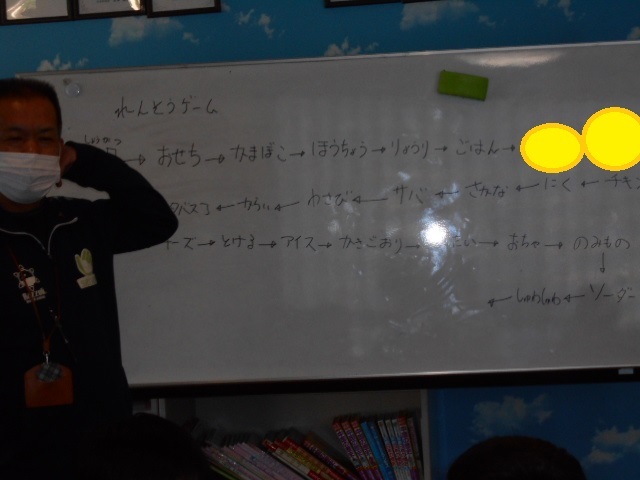 れんそうゲーム
→ おせち → かまぼこ → ほうちょう → りょうり → ごはん →
タバスコ ← からい ← わさび ← サバ ← さかな ← にく ← チキン
ーズ → とける → アイス → かきごおり → → おちゃ → のみもの
↓
← しゅわしゅわ ← ソーダー